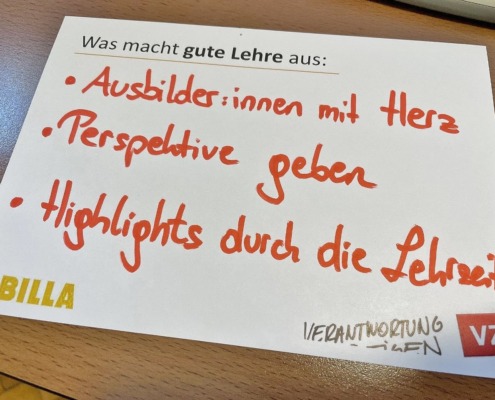 Was macht gute Lehre aus:
• Ausbilder:innen mit Herz
• Perspektive geben
• Highlights durch die Lehrzeit
BILLA
VERANTWORTUNG